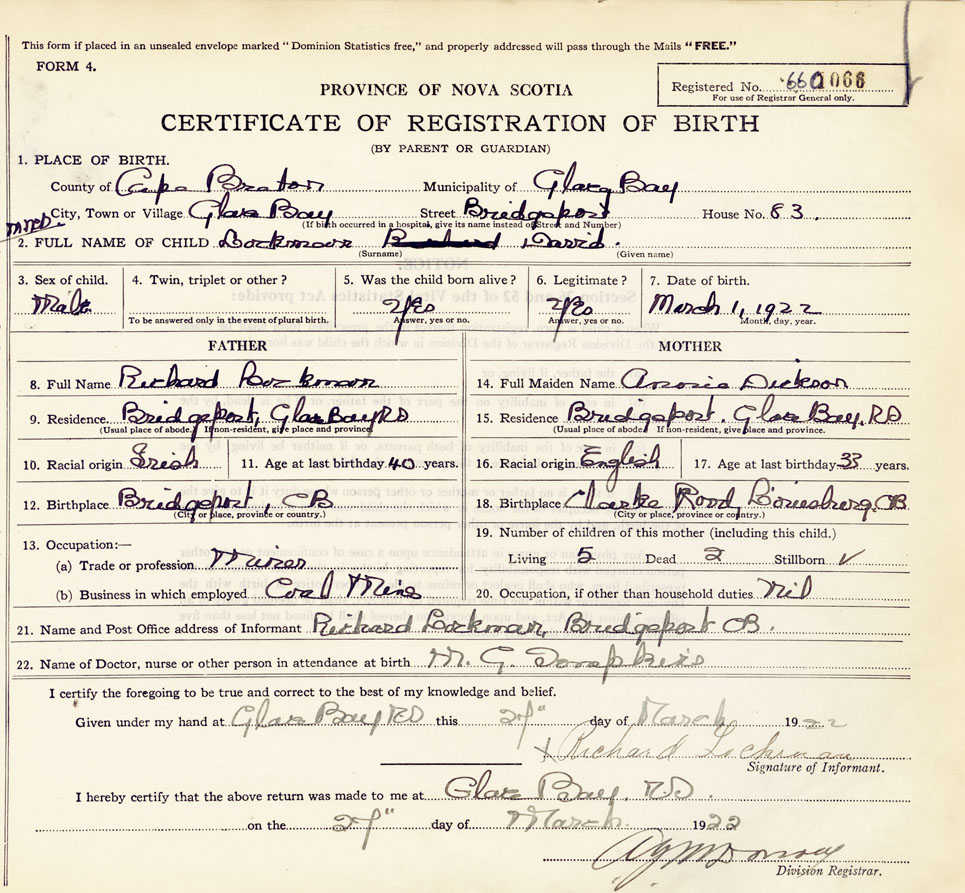 This form if placed in an unsealed envelope marked "Dominion Statistics free," and properly addressed will pass through the Mails "FREE."
FORM 4.
Registered No. 066
For use of Registrar General only.
PROVINCE OF NOVA SCOTIA
CERTIFICATE OF REGISTRATION OF BIRTH
(BY PARENT OR GUARDIAN)
1. PLACE OF BIRTH.
County of Cape Breton Municipality of Glace Bay
City, Town or Village Glace Bay Street Bridgeport House No. 83.
(If birth occurred in a hospital, give its name instead of Street and Number)
2. FULL NAME OF CHILD Lockman David.
(Surname) (Given name)
3. Sex of child. 4. Twin, triplet or other? 5. Was the child born alive? 6. Legitimate? 7. Date of birth.
Male Yes Yes March 1, 1922
To be answered only in the event of plural birth. Answer, yes or no. Answer, yes or no. Month, day, year.
FATHER MOTHER
8. Full Name Richard Lockman 14. Full Maiden Name Dickson
9. Residence Bridgeport, Glace Bay RD 15. Residence Bridgeport. Glace Bay, RD
(Usual place of abode. If non-resident, give place and province.) (Usual place of abode. If non-resident, give place and province.
10. Racial origin Irish 11. Age at last birthday 40 years. 16. Racial origin English 17. Age at last birthday 33 years.
12. Birthplace Bridgeport, CB 18. Birthplace Clarke Road, Louisburg, CB
(City or place, province or country.) (City or place, province or country.)
13. Occupation:— 19. Number of children of this mother (including this child.)
(a) Trade or profession Miner Living 5 Dead 2 Stillborn ✓
(b) Business in which employed Coal Mine 20. Occupation, if other than household duties Nil
21. Name and Post Office address of Informant Richard Lockman, Bridgeport CB.
22. Name of Doctor, nurse or other person in attendance at birth M. G. Tompkins
I certify the foregoing to be true and correct to the best of my knowledge and belief.
Given under my hand at Glace Bay RD this 27" day of March 1922
x Richard Lockman
Signature of Informant.
I hereby certify that the above return was made to me at Glace Bay. RD.
on the 27" day of March 1922
Division Registrar.